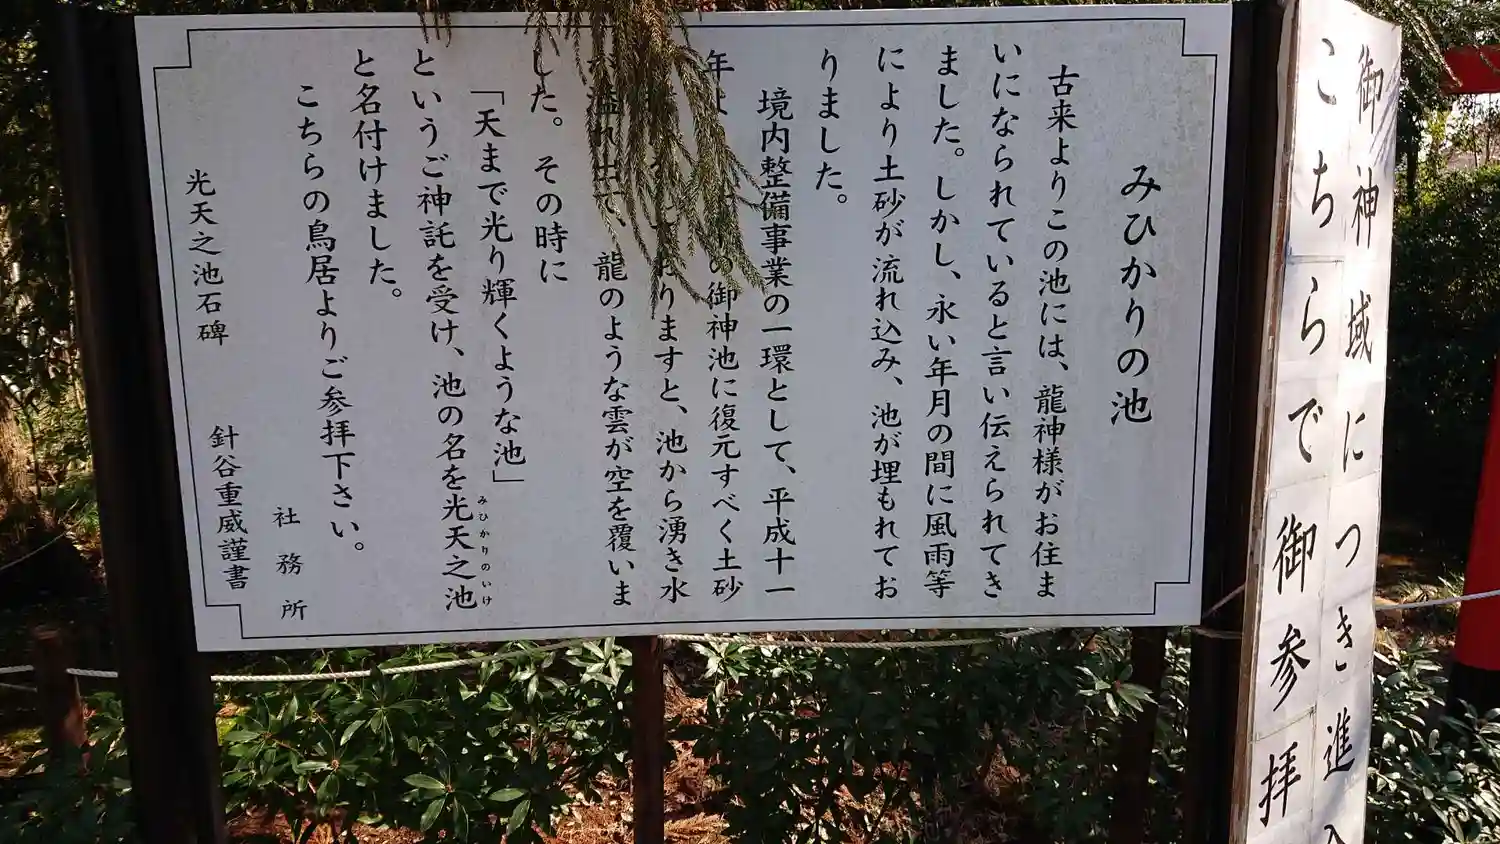 御神域につき進入
こちらで御参拝
みひかりの池
古来よりこの池には、龍神様がお住ま
いになられていると言い伝えられてき
ました。しかし、永い年月の間に風雨等
により土砂が流れ込み、池が埋もれてお
りました。
境内整備事業の一環として、平成十一
年よ の御神池に復元すべく土砂
おりますと、池から湧き水
溢れ出て、龍のような雲が空を覆いま
した。その時に
「天まで光り輝くような池」
というご神託を受け、池の名を光天之池
みひかりのいけ
と名付けました。
こちらの鳥居よりご参拝下さい。
社務所
光天之池石碑 針谷重威謹書